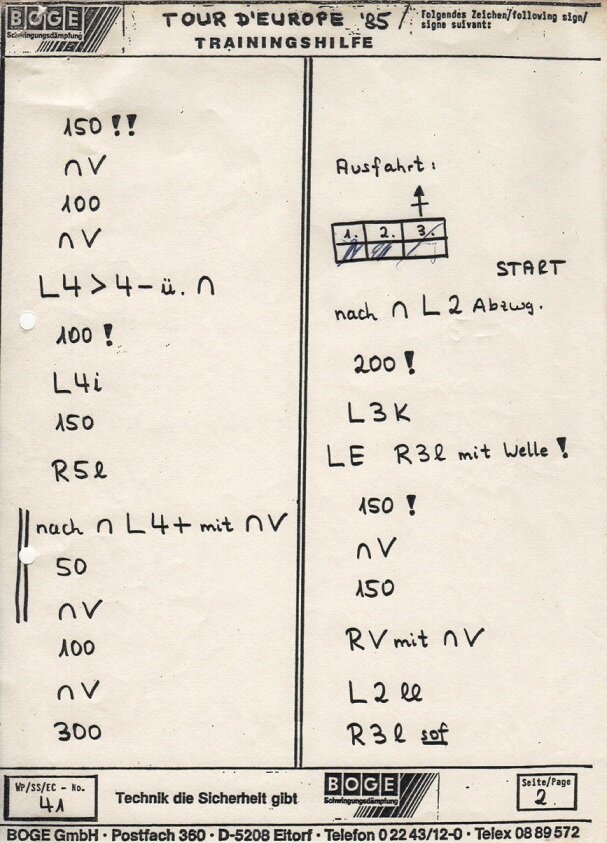 BOGE
Schwingungsdämpfung
TOUR D'EUROPE '85 /
TRAININGSHILFE
Folgendes Zeichen/following sign/
signe suivant:
150 !!
∩ V
100
∩ V
L4 > 4 - ü. ∩
100 !
L4i
150
R5l
nach ∩ L4+ mit ∩V
50
∩ V
100
∩ V
300
Ausfahrt:
1. 2. 3.
START
nach ∩ L2 Abzwg.
200 !
L3K
LE R3l mit Welle !
150 !
∩ V
150
RV mit ∩ V
L2 ll
R3l sof
WP/SS/EC - No.
41
Technik die Sicherheit gibt
BOGE
Schwingungsdämpfung
Seite/Page
2
BOGE GmbH · Postfach 360 · D-5208 Eitorf · Telefon 0 22 43/12-0 · Telex 08 89 572